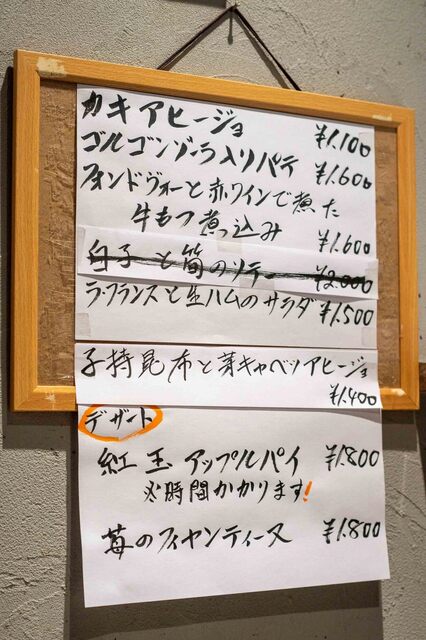 カキアヒージョ ¥1.100
ゴルゴンゾーラ入りパテ ¥1.600
フォンドヴォーと赤ワインで煮た
牛もつ煮っ込み ¥1.600
白子と筍のソテー ¥2.000
ラ・フランスと生ハムのサラダ ¥1.500
子持昆布と芽キャベツアヒージョ
¥1.400
デザート
紅玉アップルパイ ¥1.800
※時間かかります!
苺のフィヤンティーヌ ¥1.800